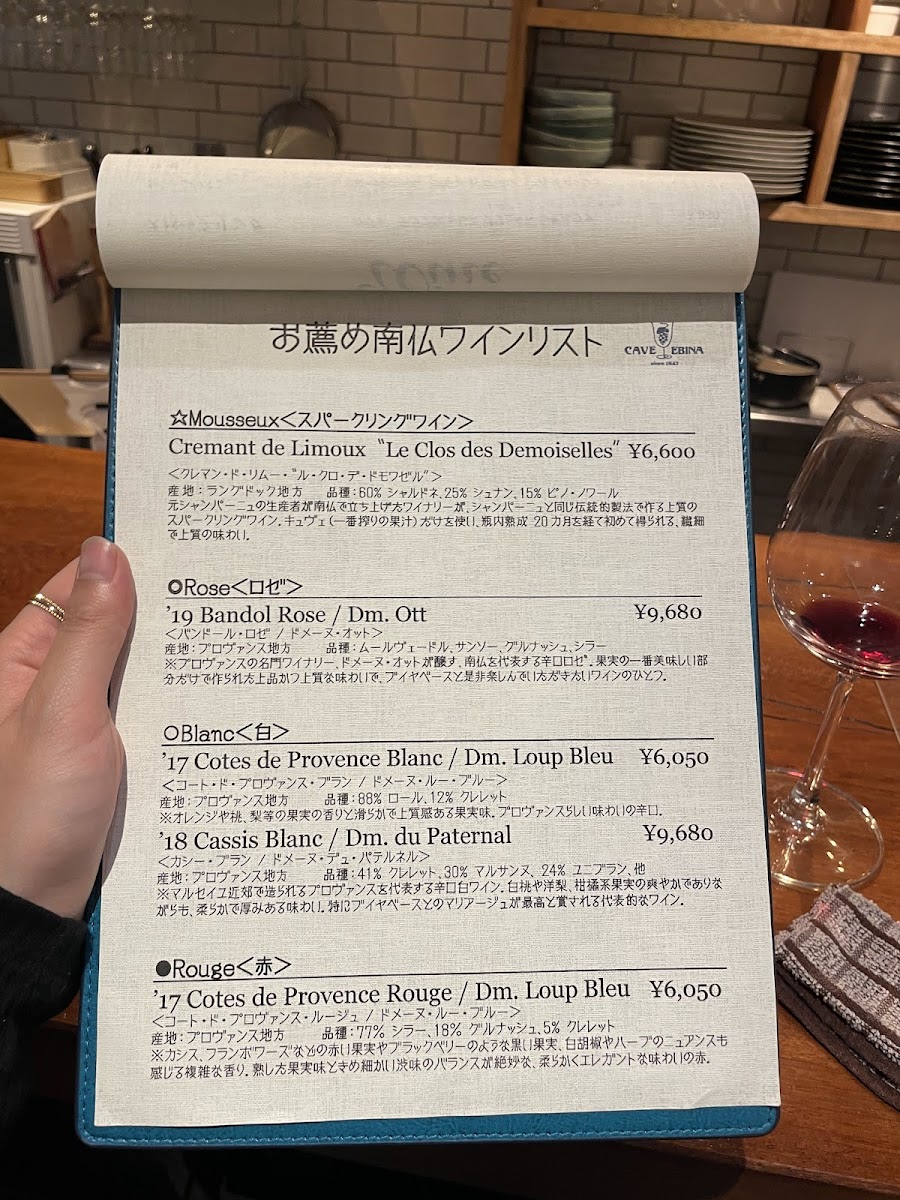 お薦め南仏ワインリスト
CAVE EBINA
☆Mousseux<スパークリングワイン>
Cremant de Limoux "Le Clos des Demoiselles" ¥6,600
<クレマン・ド・リムー・"ル・クロ・デ・ドモワゼル">
産地：ラングドック地方 品種：60% シャルドネ、25% シュナン、15% ピノ・ノワール
元シャンパーニュの生産者が南仏で立ち上げたワイナリーが、シャンパーニュと同じ伝統的製法で作る上質の
スパークリングワイン。キュヴェ（一番搾りの果汁）だけを使い、瓶内熟成 20カ月を経て初めて得られる、繊細
で上質の味わい。
◎Rose<ロゼ>
'19 Bandol Rose / Dm. Ott ¥9,680
<バンドール・ロゼ / ドメーヌ・オット>
産地：プロヴァンス地方 品種：ムールヴェードル、サンソー、グルナッシュ、シラー
※プロヴァンスの名門ワイナリー、ドメーヌ・オットが醸す、南仏を代表する辛口ロゼ。果実の一番美味しい部
分だけで作られた上品かつ上質な味わいで、ブイヤベースと是非楽しんでいただきたいワインのひとつ。
○Blanc<白>
'17 Cotes de Provence Blanc / Dm. Loup Bleu ¥6,050
<コート・ド・プロヴァンス・ブラン / ドメーヌ・ルー・ブルー>
産地：プロヴァンス地方 品種：88% ロール、12% クレレット
※オレンジや桃、梨等の果実の香りと滑らかで上質感ある果実味。プロヴァンスらしい味わいの辛口。
'18 Cassis Blanc / Dm. du Paternal ¥9,680
<カシー・ブラン / ドメーヌ・デュ・パテルネル>
産地：プロヴァンス地方 品種：41% クレレット、30% マルサンヌ、24% ユニブラン、他
※マルセイユ近郊で造られるプロヴァンスを代表する辛口白ワイン。白桃や洋梨、柑橘系果実の爽やかでありな
がらも、柔らかで厚みある味わい。特にブイヤベースとのマリアージュが最高と賞される代表的なワイン。
●Rouge<赤>
'17 Cotes de Provence Rouge / Dm. Loup Bleu ¥6,050
<コート・ド・プロヴァンス・ルージュ / ドメーヌ・ルー・ブルー>
産地：プロヴァンス地方 品種：77% シラー、18% グルナッシュ、5% クレレット
※カシス、フランボワーズなどの赤い果実やブラックベリーのような黒い果実、白胡椒やハーブのニュアンスも
感じる複雑な香り。熟した果実味ときめ細かい渋味のバランスが絶妙な、柔らかくエレガントな味わいの赤。